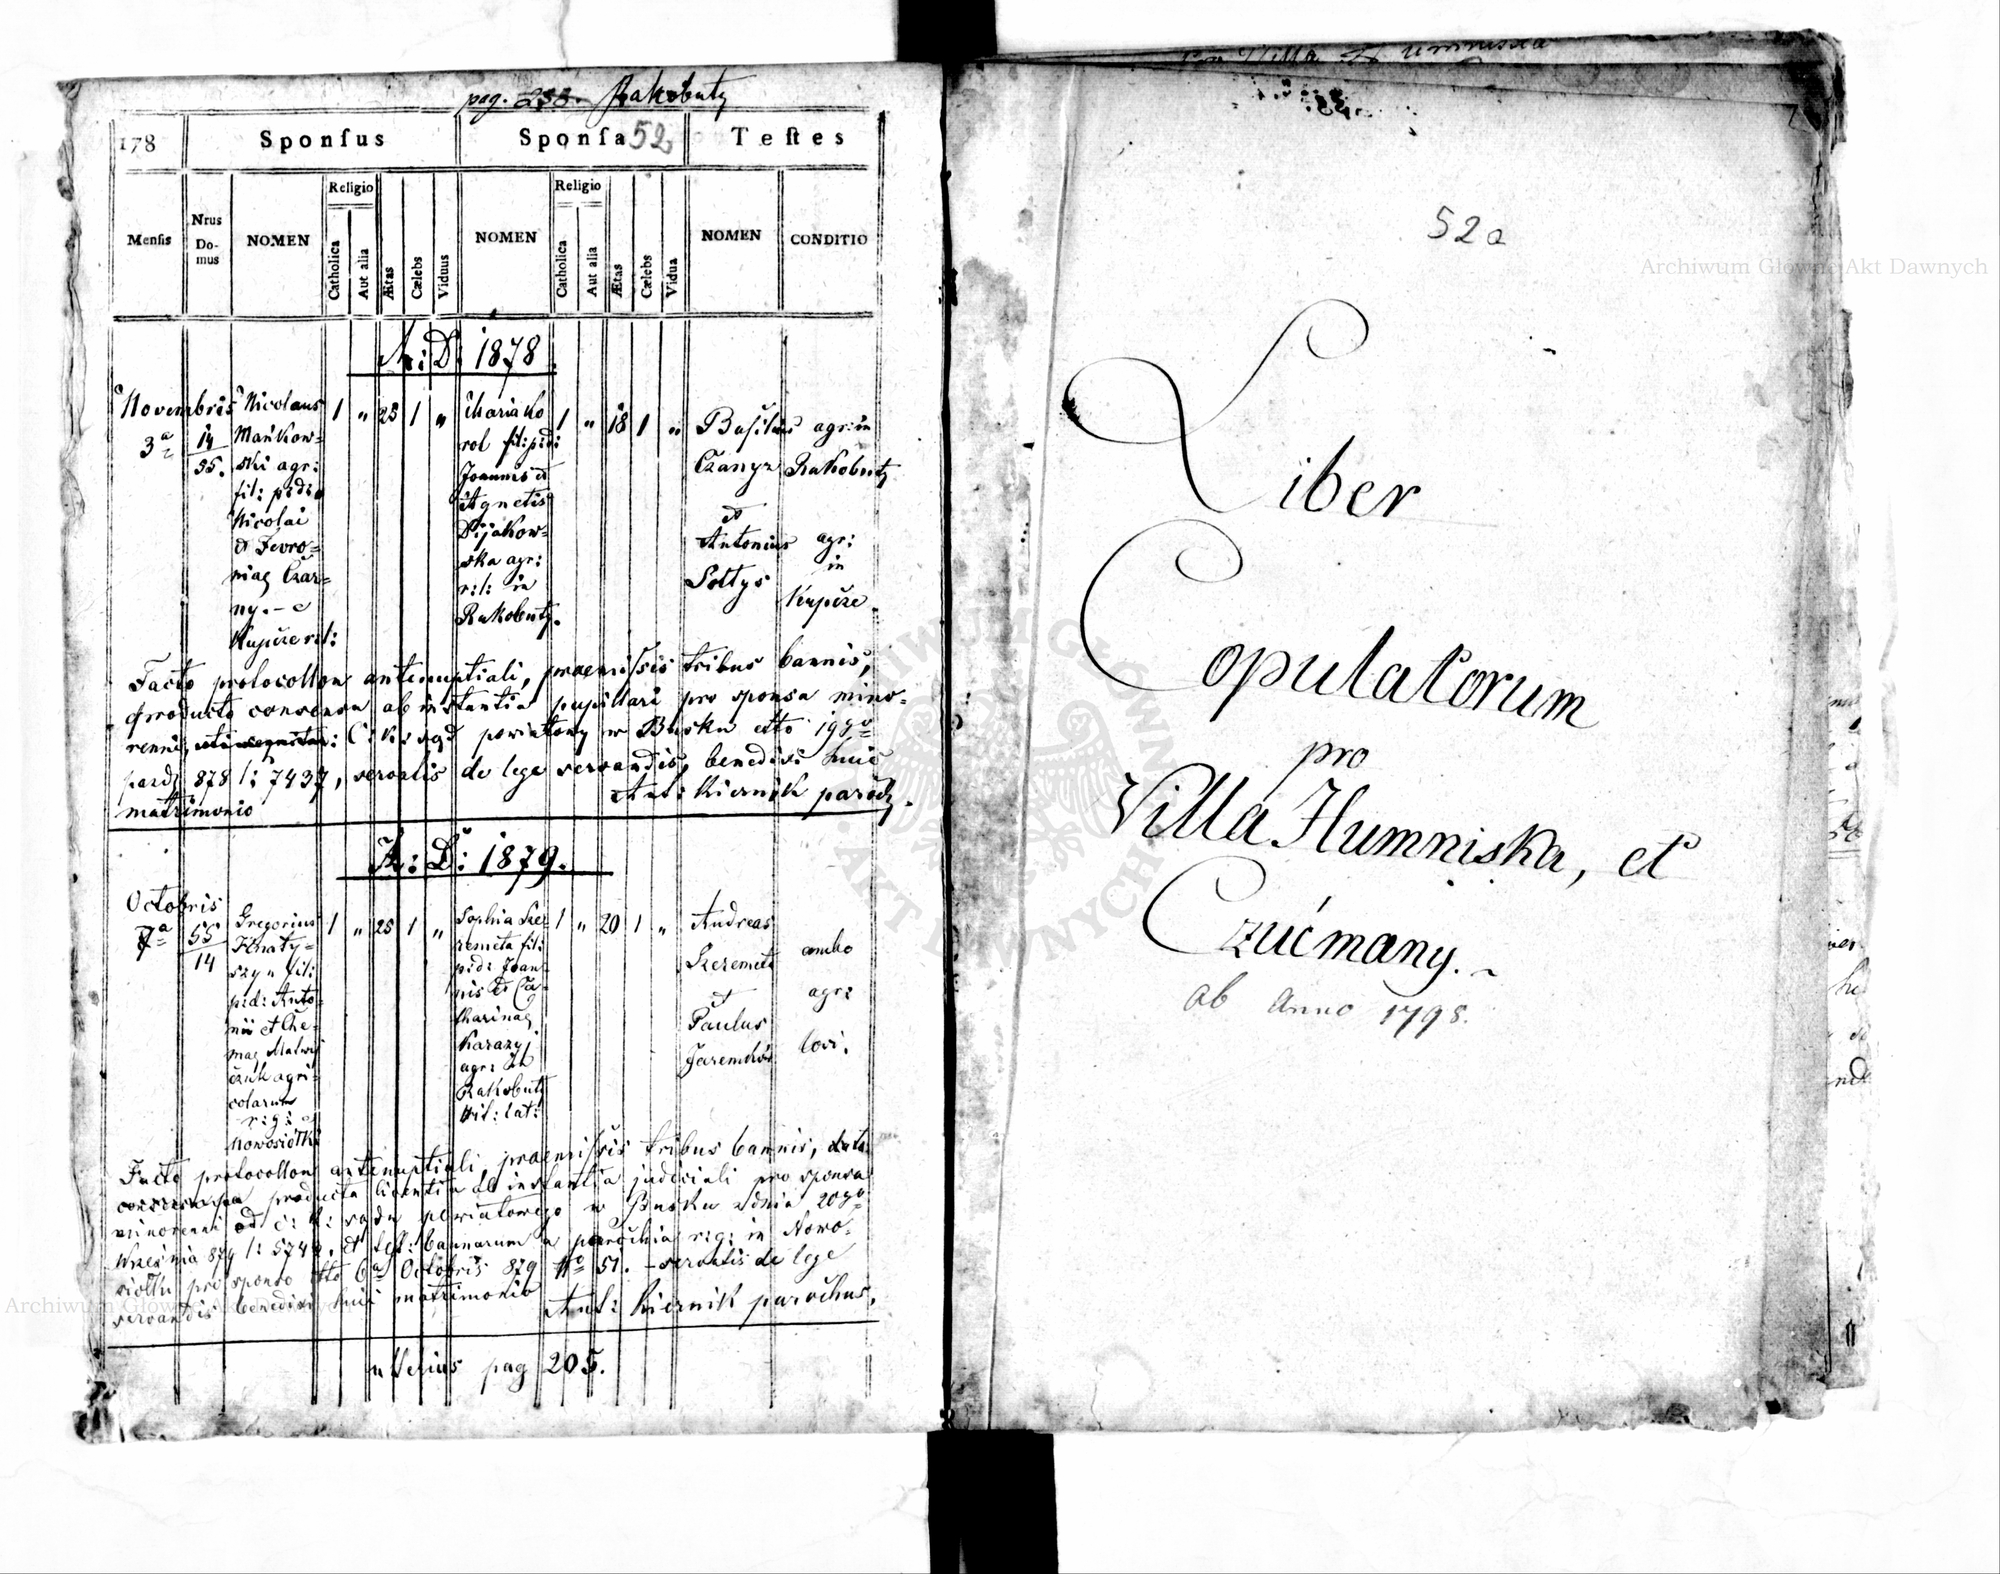 pag. 253. Rakobuty
178 Sponſus Sponſa 52 Teſtes
Menſis Nrus Domus NOMEN Religio Catholica Aut alia Ætas Cælebs Viduus NOMEN Religio Catholica Aut alia Ætas Cælebs Vidua NOMEN CONDITIO
A: D: 1878
Novembris
3a
14
35.
Nicolaus
Mańkow=
ski agr:
fil:
Nicolai
et Fevro=
niae Czar=
ny. – e
Kupcze r:l:
1 „ 25 1 „
Maria Ko
rol fil: p:d:
Joannis et
Agnetis
Dijakow=
ska agr:
r:l: in
Rakobuty.
1 „ 18 1 „
Basilius
Czanyz
et
Antonius
Sołtys
agr: in
Rakobuty
agr:
in
Kupcze.
Facto protocollon antenuptiali, praemissis tribus bannis,
producto consensu ab instantia pupillari pro sponsa mino-
renni, C: k: sąd powiatowy w Busku dtto 19go
paźdz 878 l: 7437, servatis de lege servandis, benedixi huic
matrimonio Ant: Kiernik paroch.
A: D: 1879.
Octobris
7a
55
14
Gregorius
Hnaty=
szyn fil:
p:d: Anto=
nii et The=
Matwij
czuk agri=
colarum
r: g: e
Nowosiółki
1 „ 25 1 „
Sophia Sze
remeta fil:
p:d: Joan=
nis et Ca=
tharinae
Karazyj
agr: in
Rakobuty
rit: lat:
1 „ 20 1 „
Andreas
Szeremeta
et
Paulus
Jaremków
ambo
agr:
loci.
Facto protocollon antenuptiali, praemissis tribus bannis,
producta licentia ab instantia judiciali pro sponsa
minorenni od c: k: sądu powiatowego w Busku z dnia 20go
Września 879 l: 574, et test: bannorum a parochia r: g: in Nowo=
siółki pro sponso dtto 6a Octobris 879 No 51. – servatis de lege
servandis benedixi huic matrimonio Ant: Kiernik parochus.
ulterius pag 205.
52a
Liber
Copulatorum
pro
Villa Humniska, et
Czućmany. ~
ab Anno 1798.
Archiwum Główne Akt Dawnych
Archiwum Główne Akt Dawnych